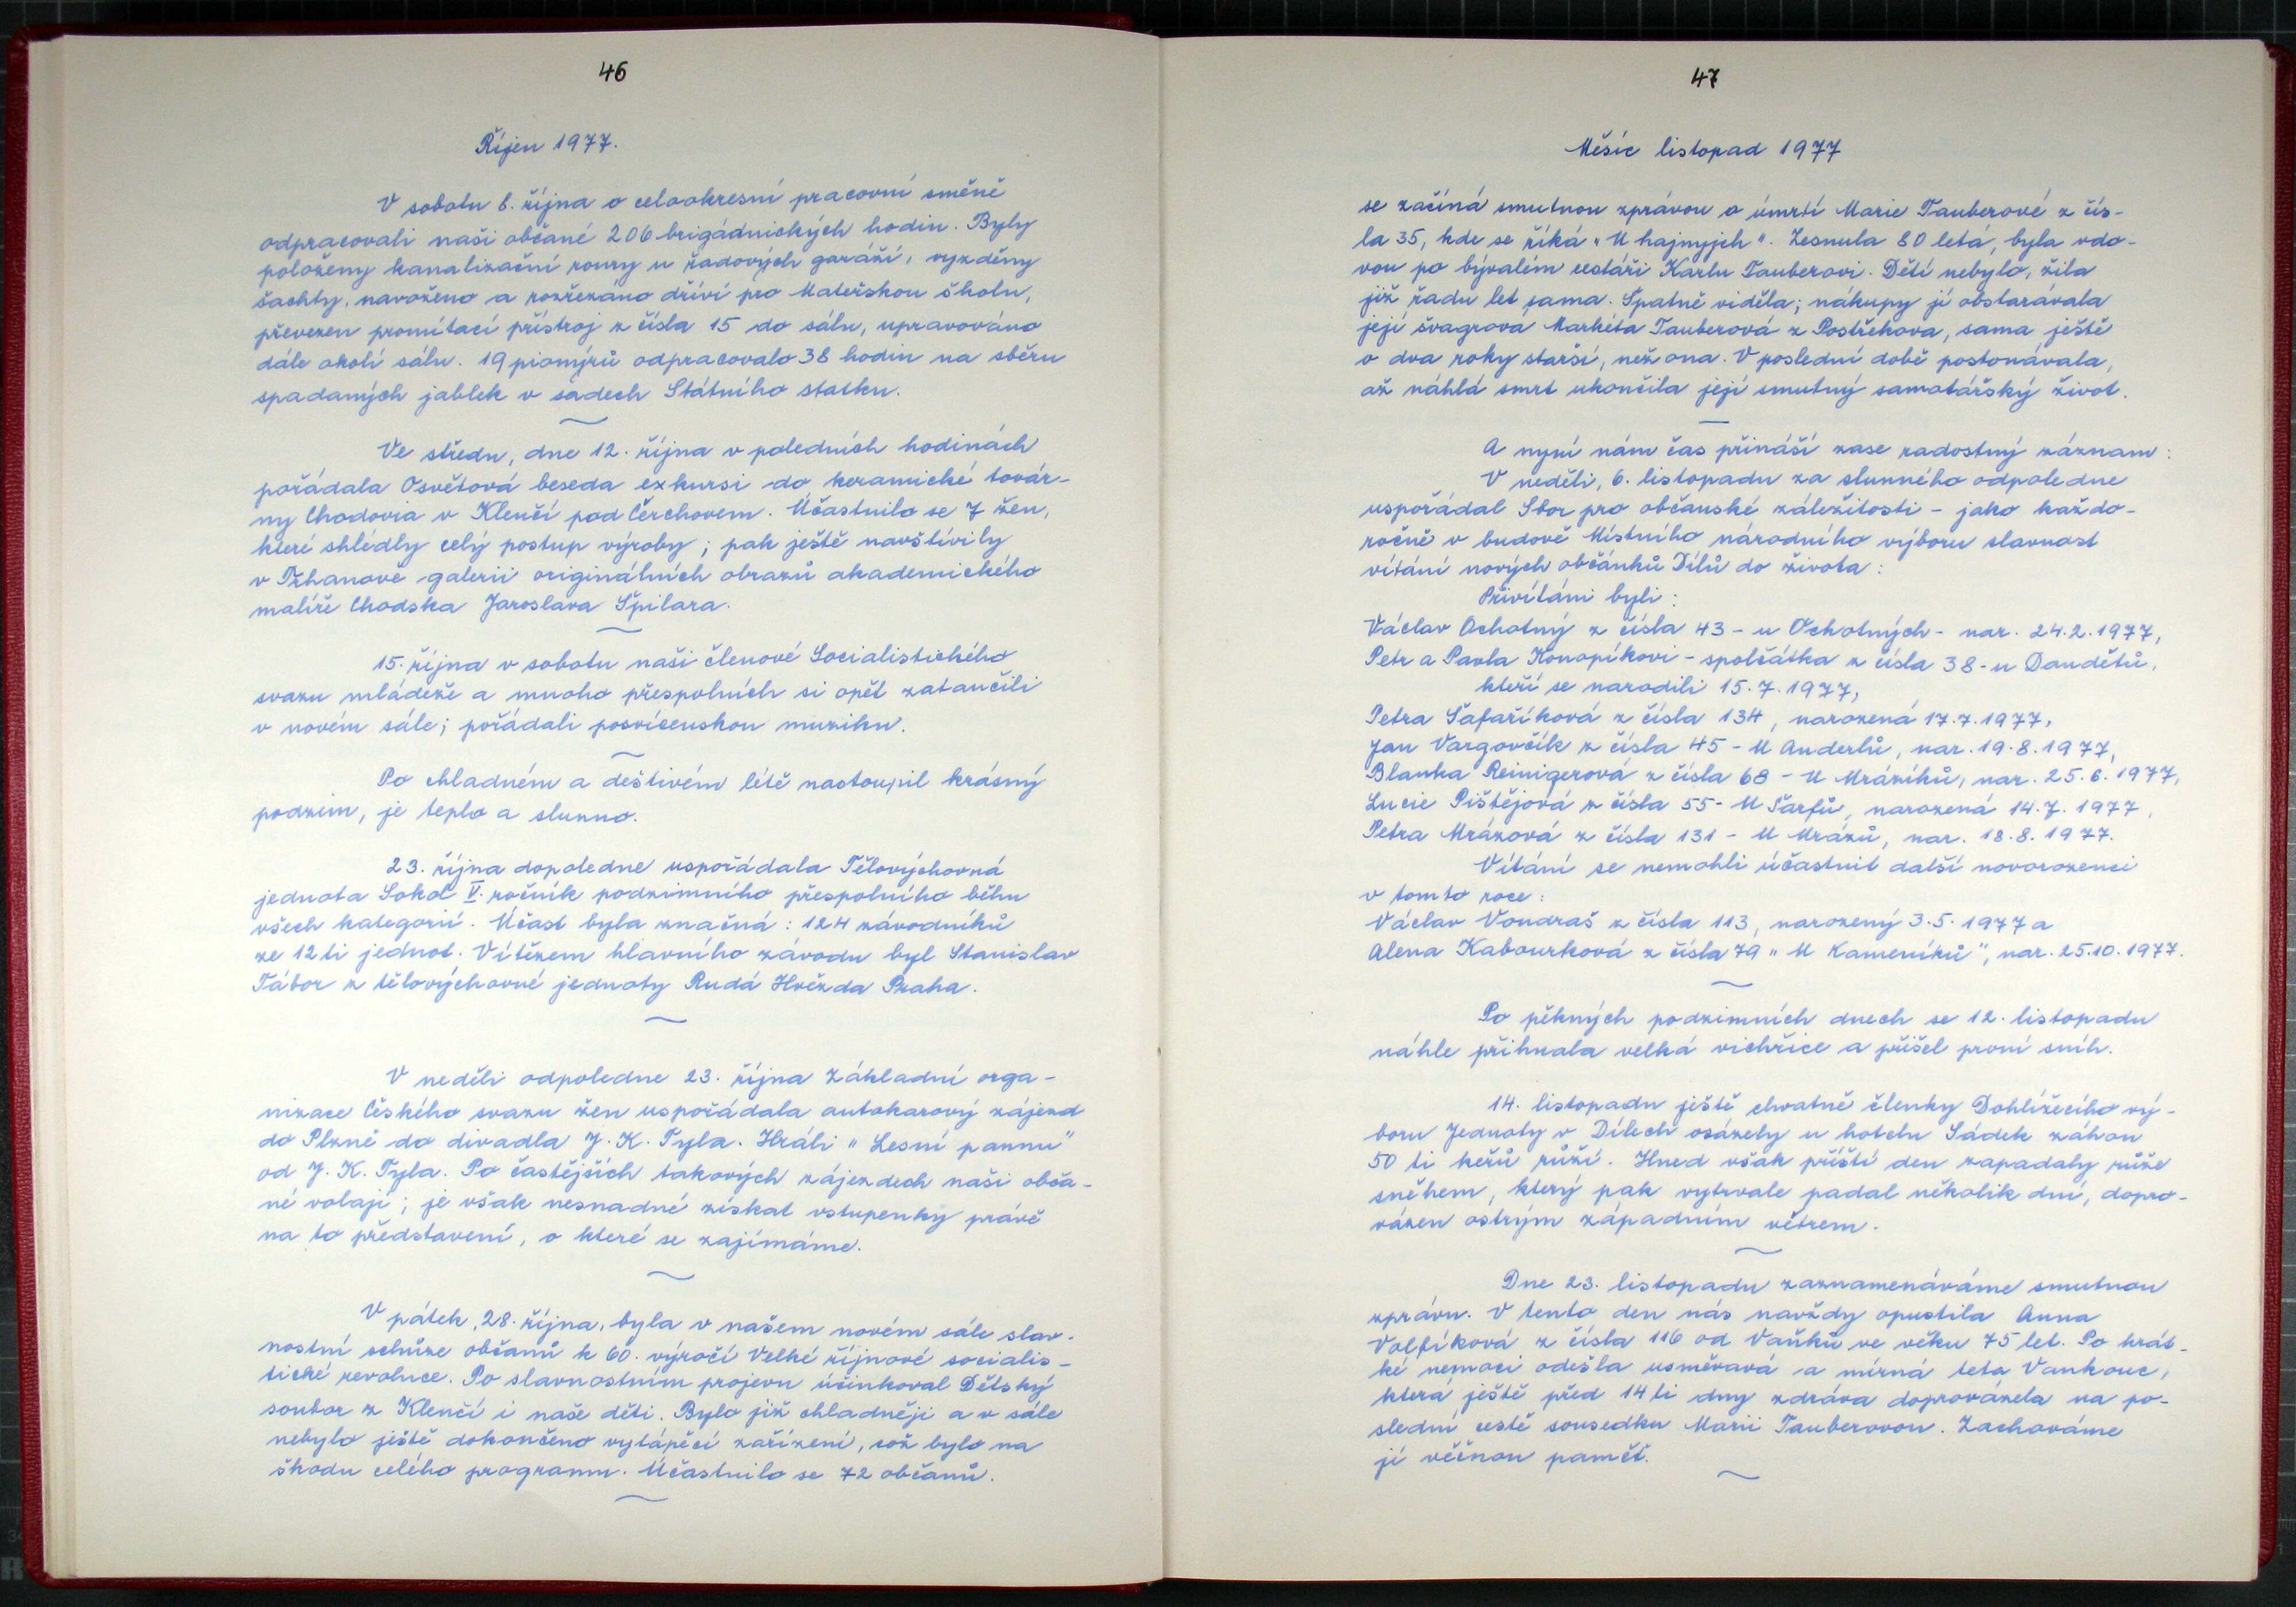 46
Říjen 1977.
V sobotu 8. října o celookresní pracovní směně
odpracovali naši občané 206 brigádnických hodin. Byly
položeny kanalizační roury u řadových garáží, vyzděny
šachty, navoženo a rozřezáno dříví pro Mateřskou školu,
převezen promítací přístroj z čísla 15 do sálu, upravováno
dále okolí sálu. 19 pionýrů odpracovalo 38 hodin na sběru
spadaných jablek v sadech Státního statku.
Ve středu, dne 12. října v poledních hodinách
pořádala Osvětová beseda exkursi do keramické továr-
ny Chodovia v Klenčí pod Čerchovem. Účastnilo se 7 žen,
které shlédly celý postup výroby; pak ještě navštívily
v Trhanově galerii originálních obrazů akademického
malíře Chodska Jaroslava Špilara.
15. října v sobotu naši členové Socialistického
svazu mládeže a mnoho přespolních si opět zatančili
v novém sále; pořádali posvícenskou muziku.
Po chladném a deštivém létě nastoupil krásný
podzim, je teplo a slunno.
23. října dopoledne uspořádala Tělovýchovná
jednota Sokol V. ročník podzimního přespolního běhu
všech kategorií. Účast byla značná: 124 závodníků
ze 12ti jednot. Vítězem hlavního závodu byl Stanislav
Tábor z tělovýchovné jednoty Rudá Hvězda Praha.
V neděli odpoledne 23. října Základní orga-
nizace Českého svazu žen uspořádala autokarový zájezd
do Plzně do divadla J. K. Tyla. Hráli "Lesní pannu"
od J. K. Tyla. Po častějších takových zájezdech naši obča-
né volají; je však nesnadné získat vstupenky právě
na to představení, o které se zajímáme.
V pátek, 28. října, byla v našem novém sále slav-
nostní schůze občanů k 60. výročí Velké říjnové socialis-
tické revoluce. Po slavnostním projevu účinkoval Dětský
soubor z Klenčí i naše děti. Bylo již chladněji a v sále
nebylo ještě dokončeno vytápěcí zařízení, což bylo na
škodu celého programu. Účastnilo se 72 občanů.
47
Měsíc listopad 1977
se začíná smutnou zprávou o úmrtí Marie Tauberové z čís-
la 35, kde se říká "U hajnyjch". Zesnula 80 letá, byla vdo-
vou po bývalém cestáři Karlu Tauberovi. Dětí nebylo, žila
již řadu let sama. Špatně viděla; nákupy jí obstarávala
její švagrova Markéta Tauberová z Postřekova, sama ještě
o dva roky starší, než ona. V poslední době postonávala,
až náhlá smrt ukončila její smutný samotářský život.
A nyní nám čas přináší zase radostný záznam:
V neděli, 6. listopadu za slunného odpoledne
uspořádal Sbor pro občanské záležitosti - jako každo-
ročně v budově Místního národního výboru slavnost
vítání nových občánků Dílů do života:
Přivítáni byli:
Václav Ochotný z čísla 43 - u Ochotných - nar. 24.2.1977,
Petr a Pavla Konopíkovi - spolčátka z čísla 38 - u Dandětů,
kteří se narodili 15.7.1977,
Petra Šafaříková z čísla 134, narozená 17.7.1977,
Jan Vargovčík z čísla 45 - U Anderlů, nar. 19.8.1977,
Blanka Reinigerová z čísla 68 - U Mrázíků, nar. 25.6.1977,
Lucie Pištějová z čísla 55 - U Šarfů, narozená 14.7.1977,
Petra Mrázová z čísla 131 - U Mrázů, nar. 18.8.1977.
Vítání se nemohli účastnit další novorozenci
v tomto roce:
Václav Vondraš z čísla 113, narozený 3.5.1977 a
Alena Kabourková z čísla 79 "U Kameníků", nar. 25.10.1977.
Po pěkných podzimních dnech se 12. listopadu
náhle přihnala velká vichřice a přišel první sníh.
14. listopadu ještě chvatně členky Dohlížecího vý-
boru Jednoty v Dílech osázely u hotelu Sádek záhon
50 ti keřů růží. Hned však příští den zapadaly růže
sněhem, který pak vytrvale padal několik dní, dopro-
vázen ostrým západním větrem.
Dne 23. listopadu zaznamenáváme smutnou
zprávu. V tento den nás navždy opustila Anna
Volfíková z čísla 116 od Vaňků ve věku 75 let. Po krát-
ké nemoci odešla usměvavá a mírná teta Vankouc,
která ještě před 14 ti dny zdráva doprovázela na po-
slední cestě sousedku Marii Tauberovou. Zachováme
jí věčnou paměť.